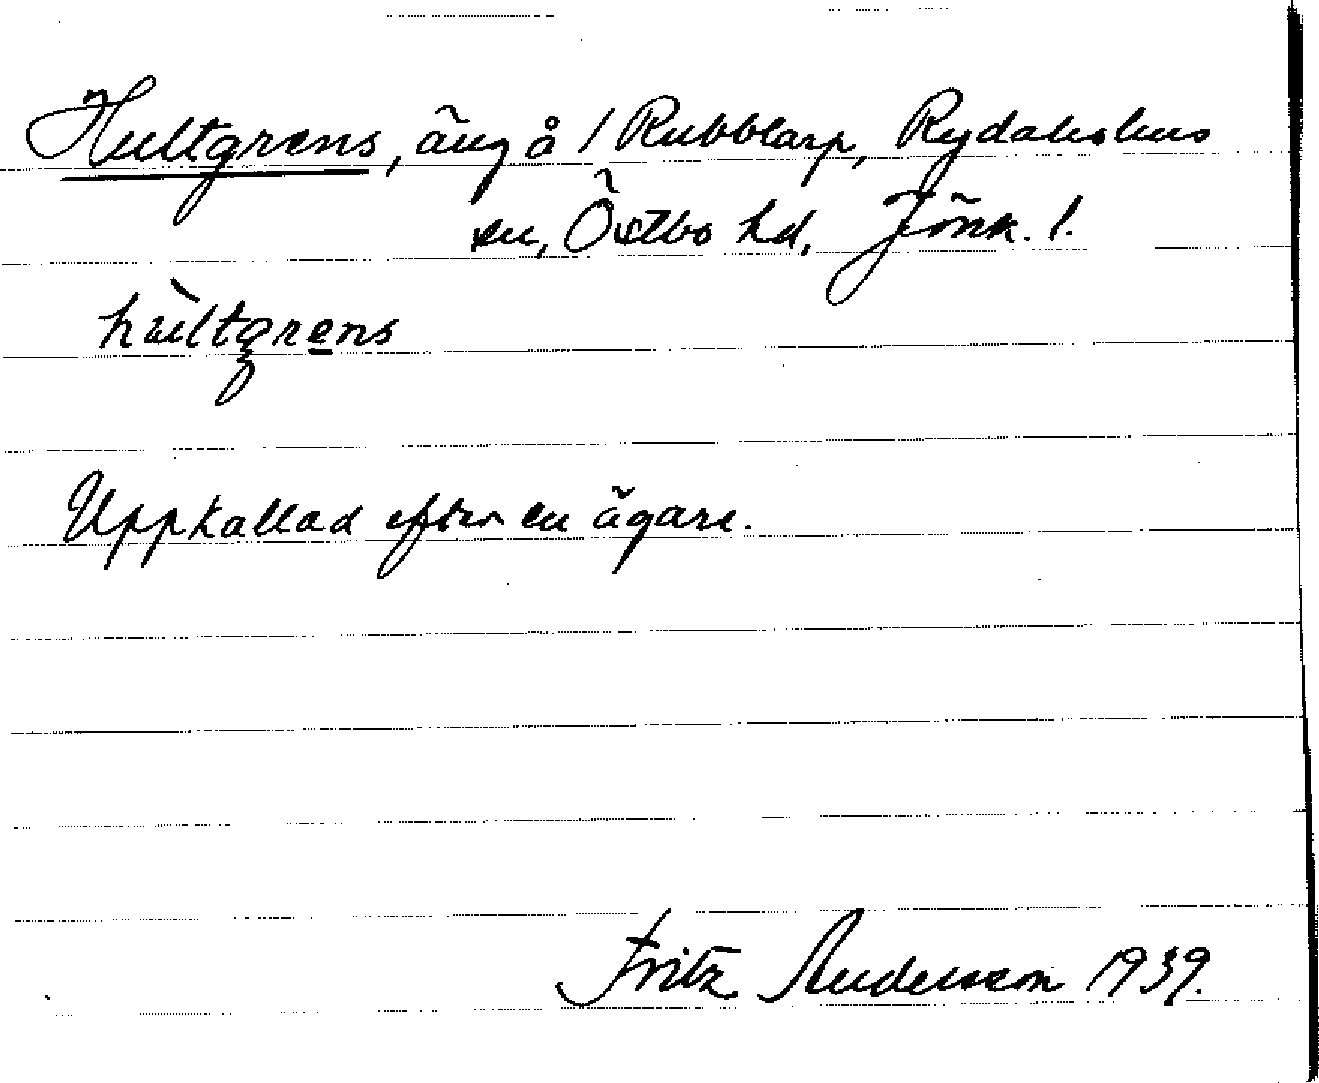 Hultgrens, äng å / Rubblarp, Rydaholms
sn, Östbo hd, Jönk. l.
hùltgrens
Uppkallad efter en ägare.
Fritz Andersson 1939.